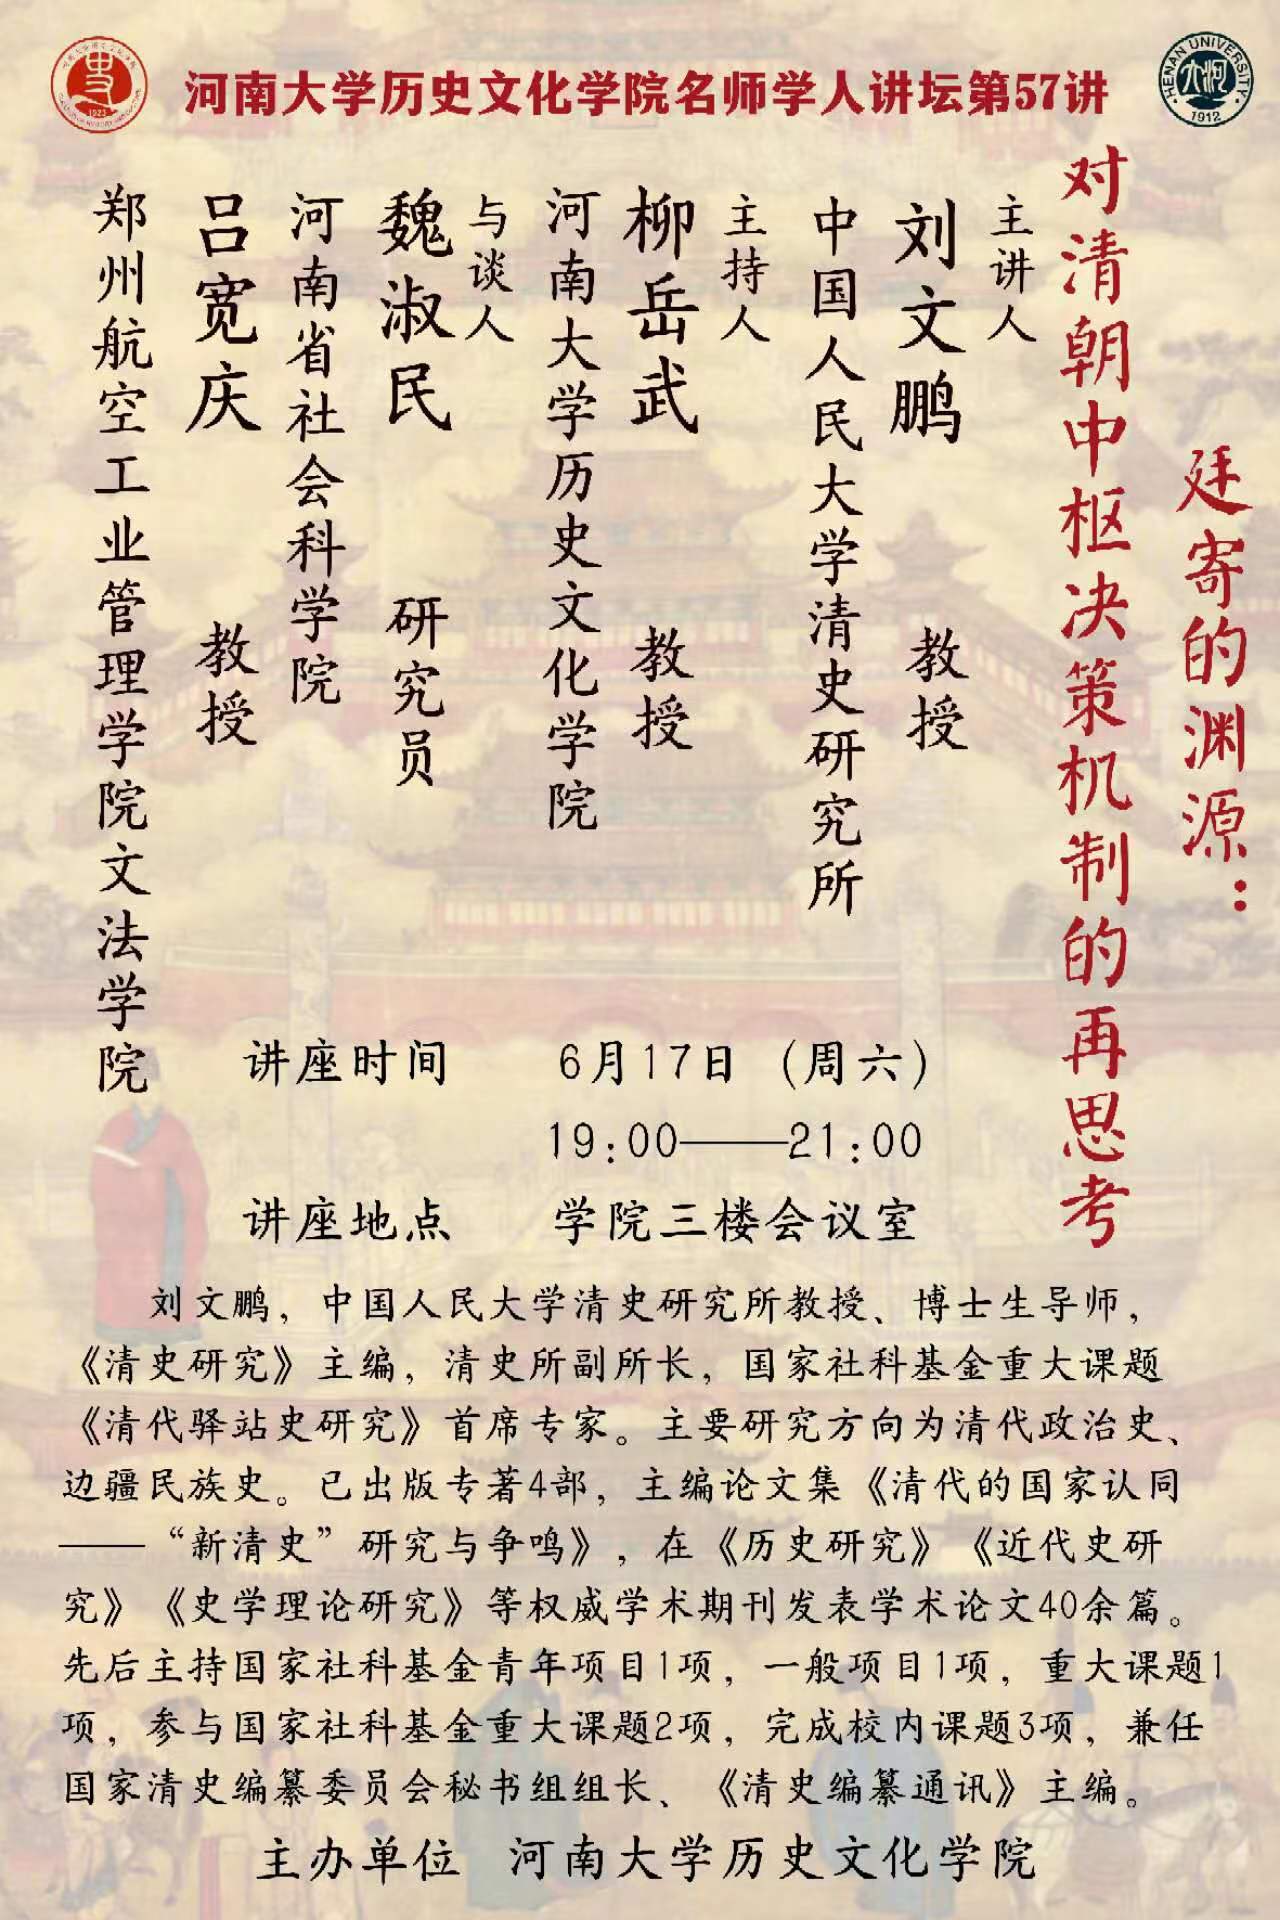 河南大学历史文化学院名师学人讲坛第57讲
1923
HENAN UNIVERSITY
1912
廷寄的渊源：
对清朝中枢决策机制的再思考
主讲人
刘文鹏 教授
中国人民大学清史研究所
主持人
柳岳武 教授
河南大学历史文化学院
与谈人
魏淑民 研究员
河南省社会科学院
吕宽庆 教授
郑州航空工业管理学院文法学院
讲座时间 6月17日（周六）
19:00——21:00
讲座地点 学院三楼会议室
刘文鹏，中国人民大学清史研究所教授、博士生导师，
《清史研究》主编，清史所副所长，国家社科基金重大课题
《清代驿站史研究》首席专家。主要研究方向为清代政治史、
边疆民族史。已出版专著4部，主编论文集《清代的国家认同
——“新清史”研究与争鸣》，在《历史研究》《近代史研
究》《史学理论研究》等权威学术期刊发表学术论文40余篇。
先后主持国家社科基金青年项目1项，一般项目1项，重大课题1
项，参与国家社科基金重大课题2项，完成校内课题3项，兼任
国家清史编纂委员会秘书组组长、《清史编纂通讯》主编。
主办单位 河南大学历史文化学院